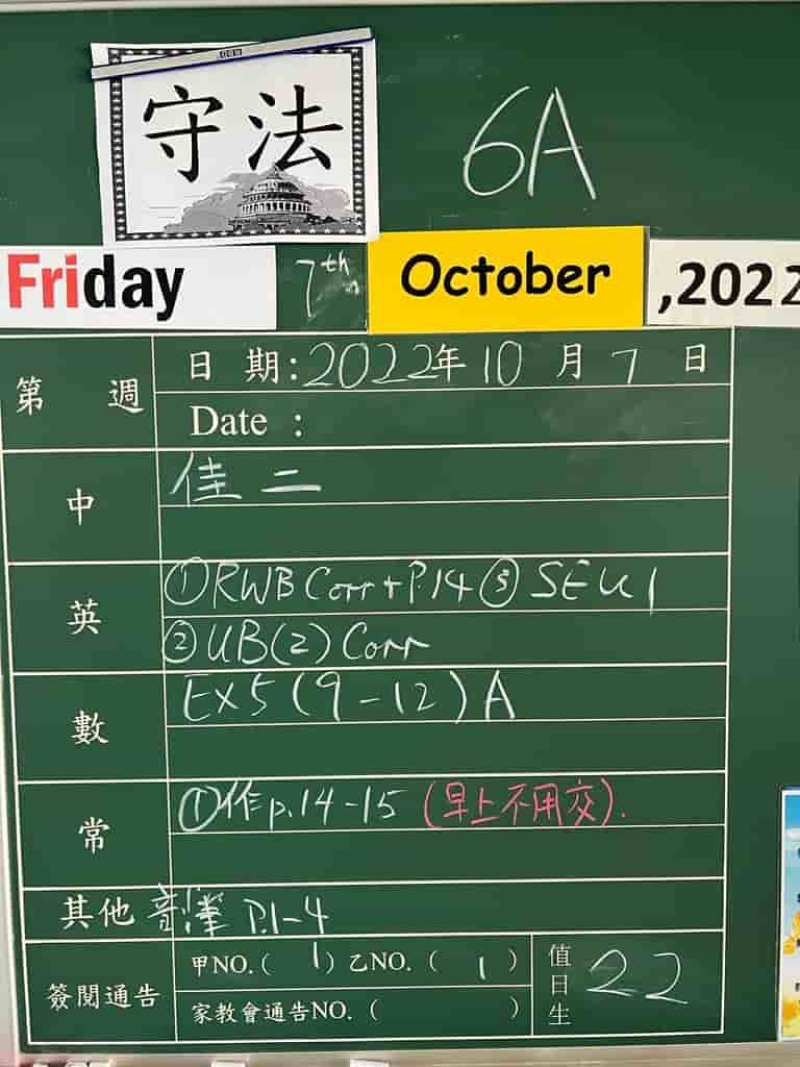 守法
6A
Friday 7th October ,2022
第 週
日 期：2022年 10 月 7 日
Date ：
中
佳二
英
①RWB Corr + P.14 ③ SE U1
②UB(2) Corr
數
Ex5 (9-12) A
常
①作 p.14-15 (早上不用交).
其他 P.1-4
簽閱通告
甲NO.( 1 ) 乙NO. ( 1 )
家教會通告NO. ( )
值日生 22